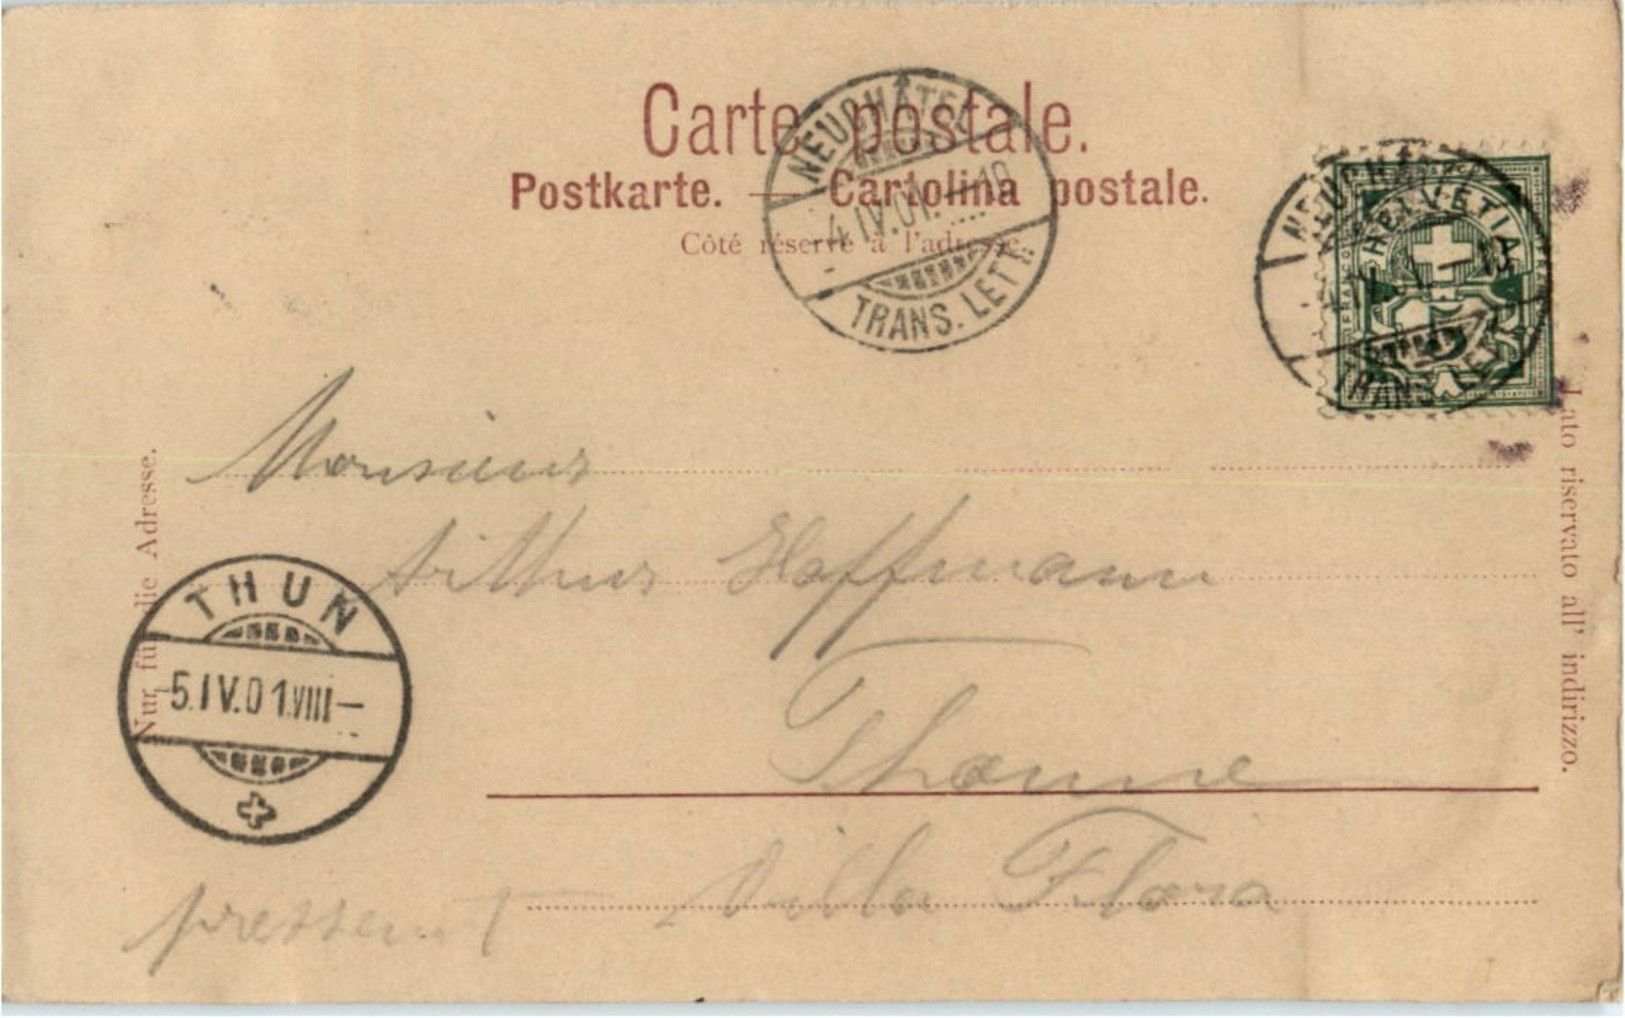 Carte postale.
Postkarte. — Cartolina postale.
Côté réservé à l'adresse.
NEUCHÂTEL
-4.IV.01.-10
TRANS. LETT.
NEUCHÂ
HELVETIA
5
TRANS. LET
Monsieur
Arthur Hoffmann
Thoune
Villa Flora
pressent
THUN
-5.IV.01.VIII-
Nur für die Adresse.
Lato riservato all' indirizzo.